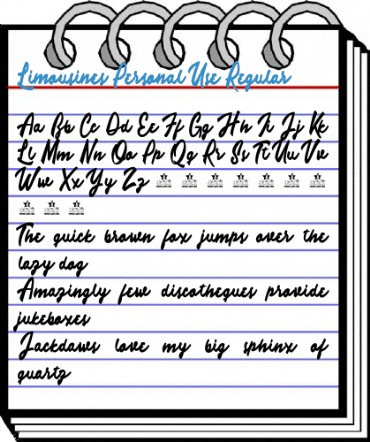 Limousines Personal Use Regular
Aa Bb Cc Dd Ee Ff Gg Hh Ii Jj Kk
Ll Mm Nn Oo Pp Qq Rr Ss Tt Uu Vv
Ww Xx Yy Zz
The quick brown fox jumps over the
lazy dog
Amazingly few discotheques provide
jukeboxes
Jackdaws love my big sphinx of
quartz